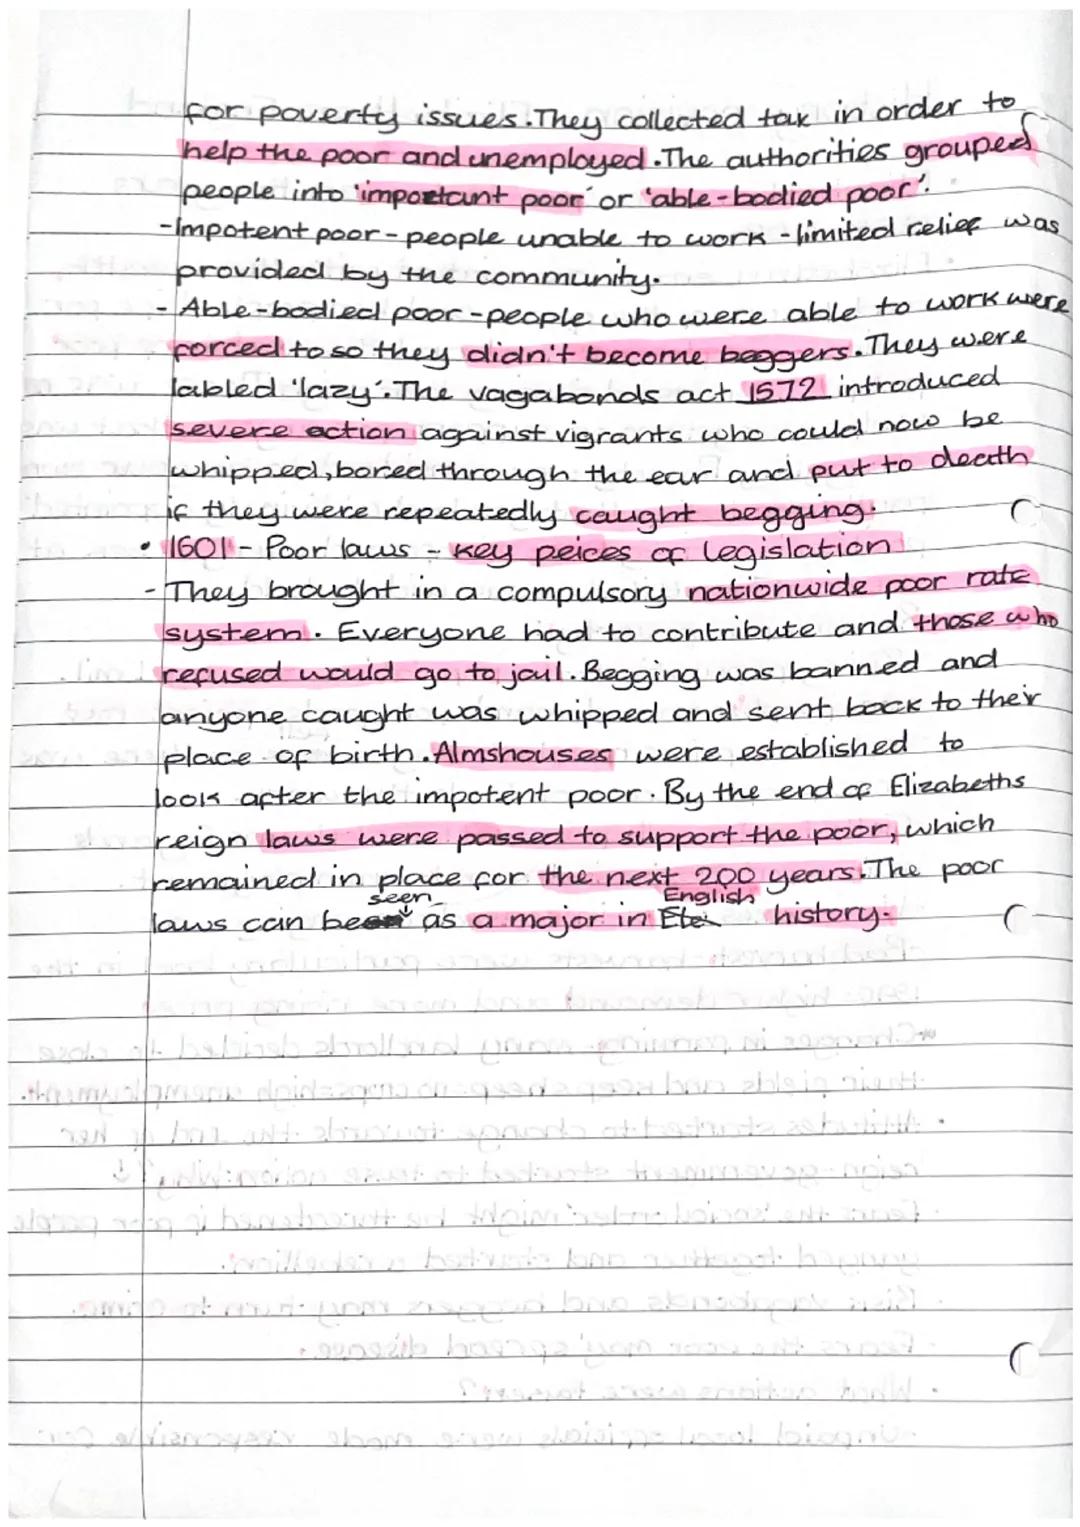 for poverty issues. They collected tax in order to
help the poor and unemployed. The authorities grouped
people into 'important poor' or 'able-bodied poor'.
- Impotent poor - people unable to work - limited relief was
provided by the community.
- Able-bodied poor - people who were able to work were
forced to so they didn't become beggers. They were
labled 'lazy'. The vagabonds act 1572 introduced
severe action against vigrants who could now be
whipped, bored through the ear and put to death
if they were repeatedly caught begging.
• 1601 - Poor laws - key peices of legislation
- They brought in a compulsory nationwide poor rate
system. Everyone had to contribute and those who
refused would go to jail. Begging was banned and
anyone caught was whipped and sent back to their
place of birth. Almshouses were established to
look after the impotent poor. By the end of Elizabeths
reign laws were passed to support the poor, which
remained in place for the next 200 years. The poor
laws can be seen as a major in English history.